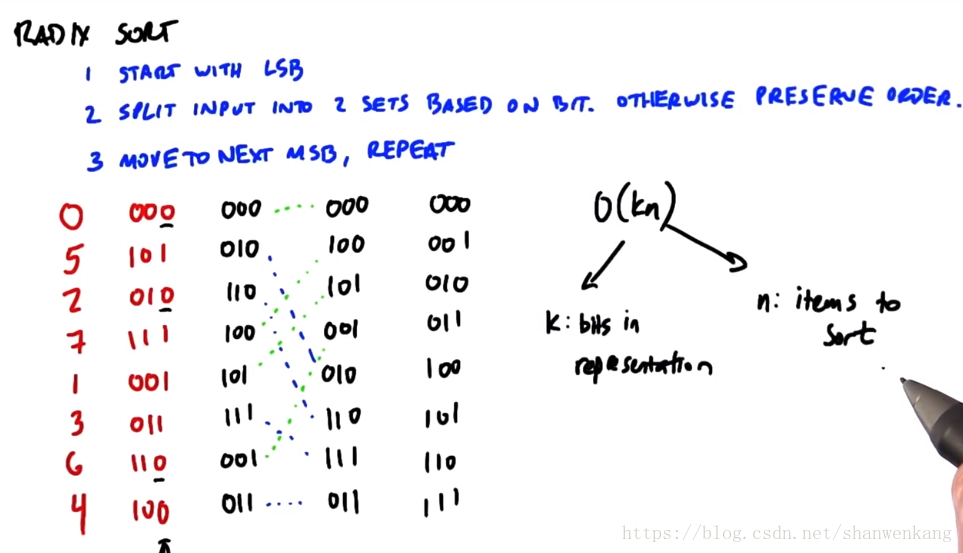 RADIX SORT
1 START WITH LSB
2 SPLIT INPUT INTO 2 SETS BASED ON BIT. OTHERWISE PRESERVE ORDER.
3 MOVE TO NEXT MSB, REPEAT
0 000 000 000 000
5 101 010 100 001
2 010 110 101 010
7 111 100 001 011
1 001 101 010 100
3 011 111 110 101
6 110 001 111 110
4 100 011 011 111
O(kn)
k: bits in
representation
n: items to
sort
https://blog.csdn.net/shanwenkang